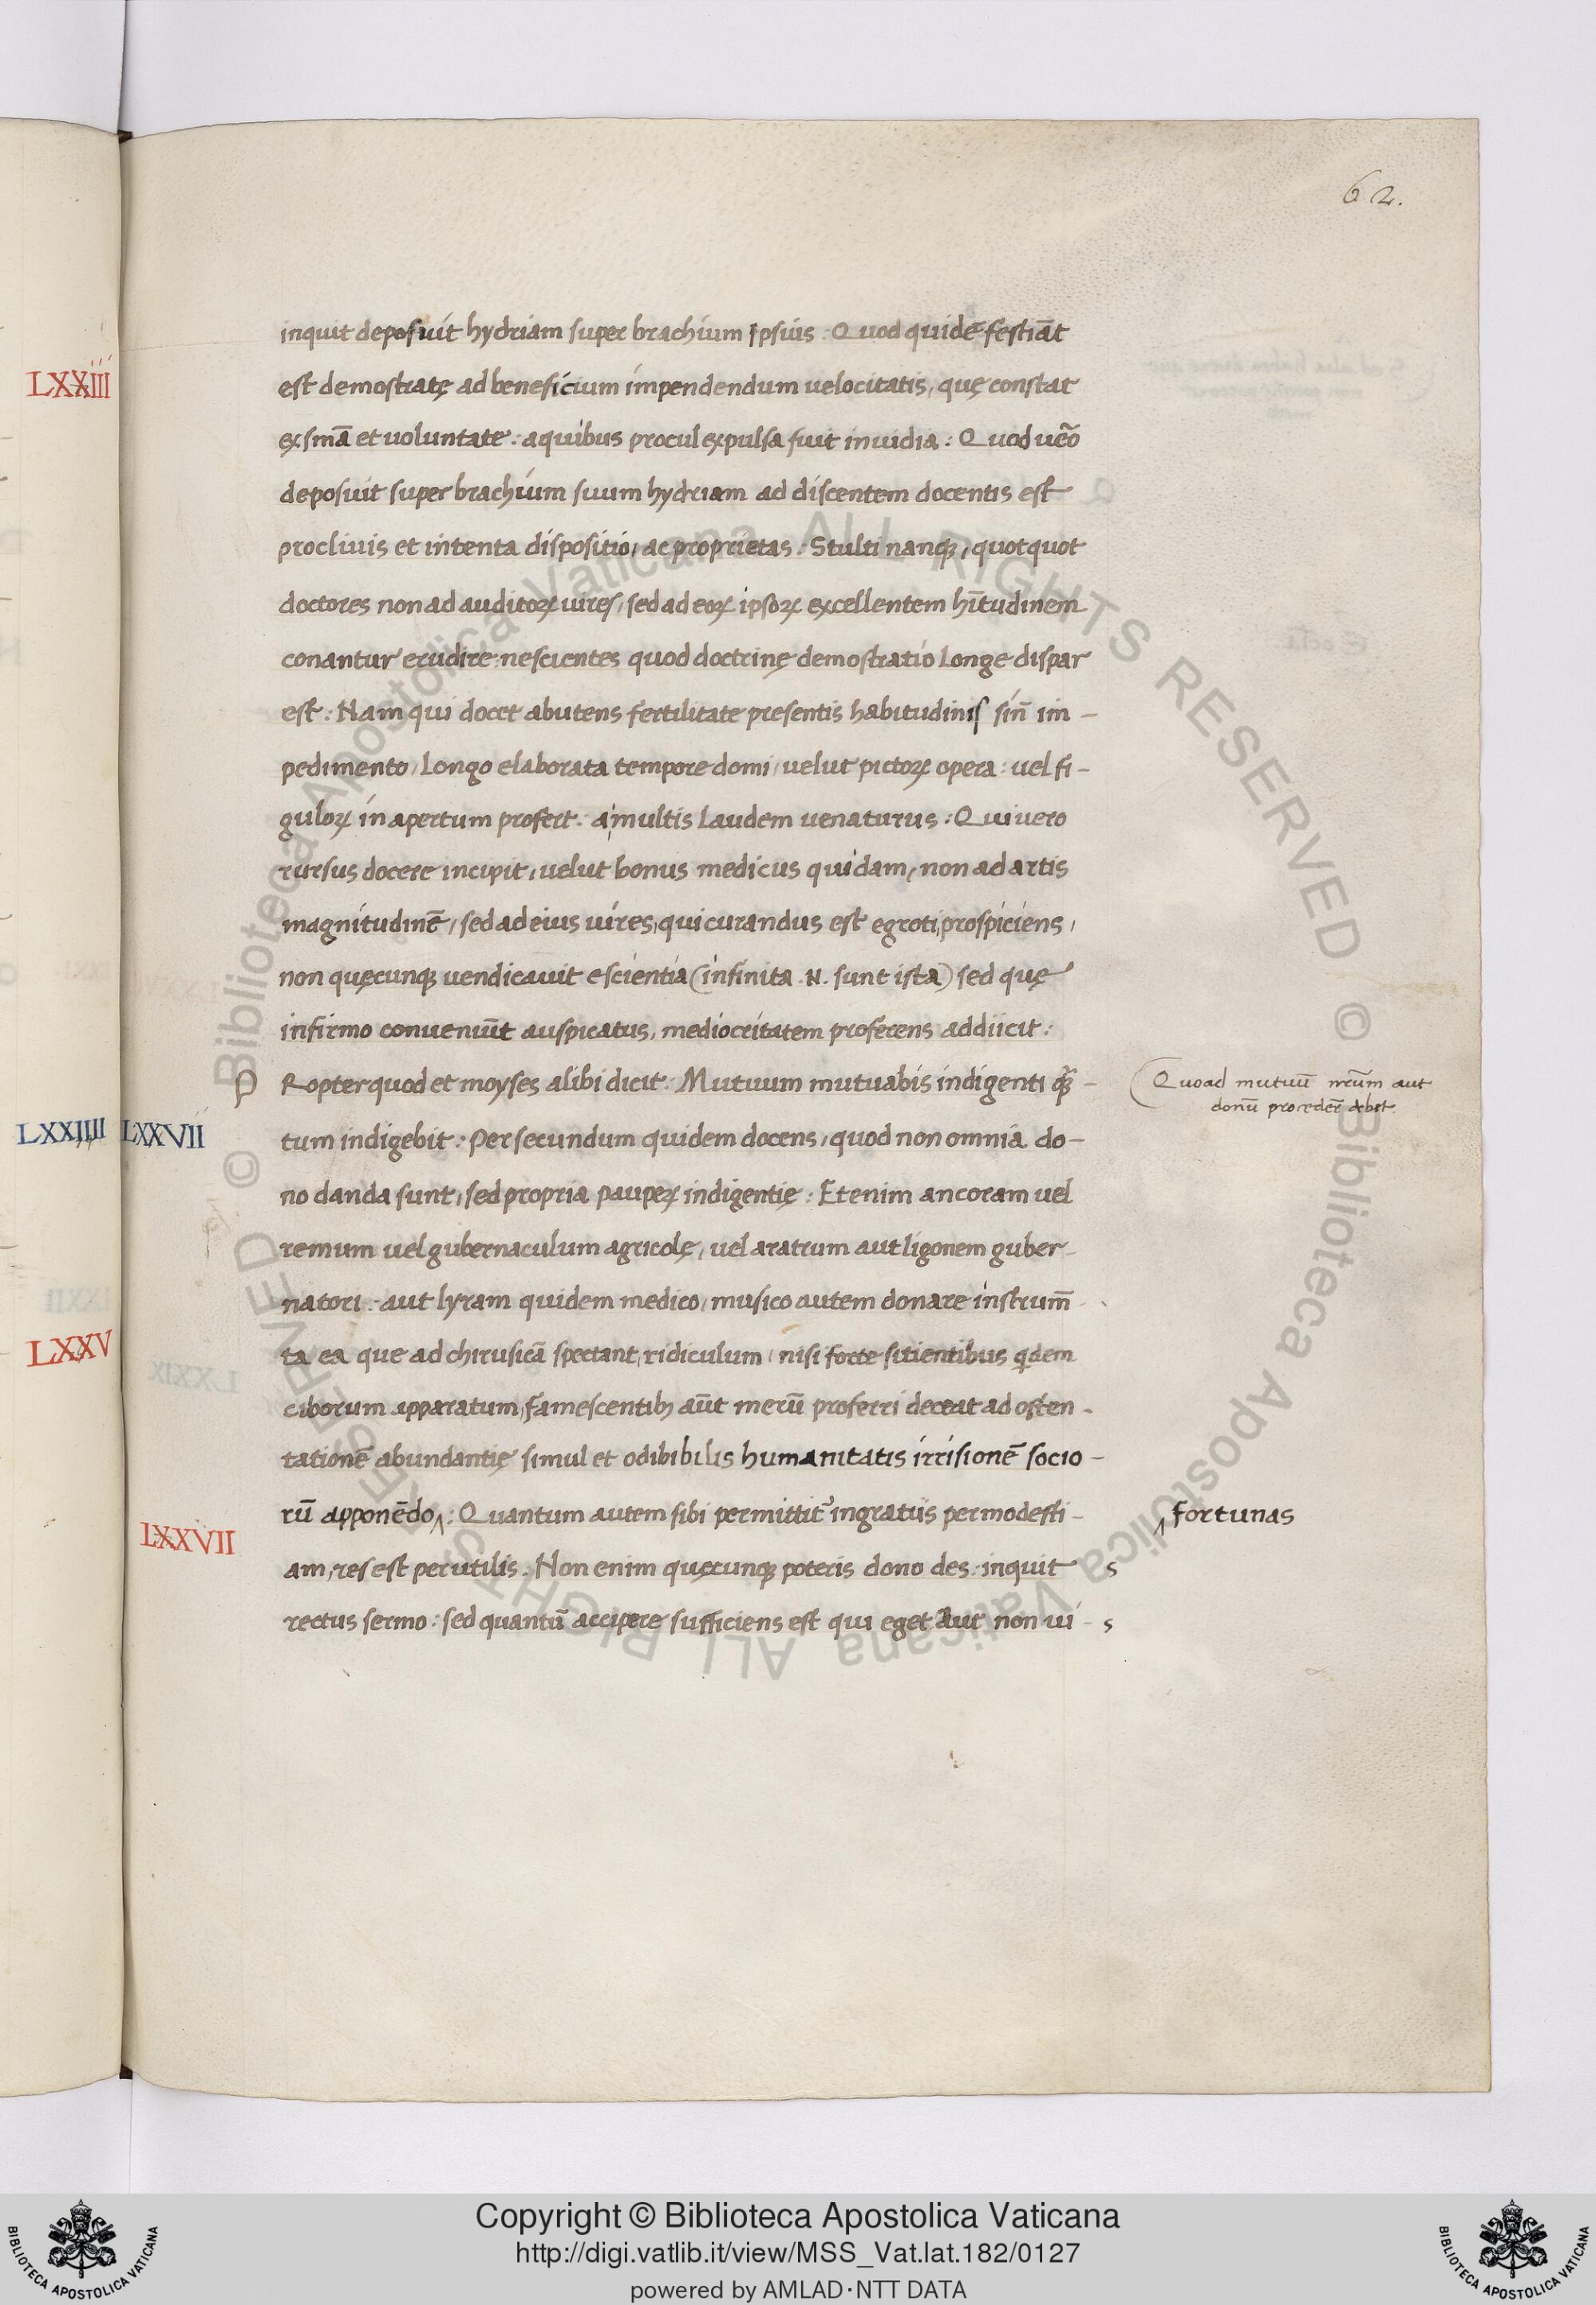 62.
inquit deposuit hydriam super brachium ipsius : Quod quidē festiāt
LXXIII
est demostratę ad beneficium impendendum velocitatis, quę constat
ex smā et uoluntate : a quibus procul expulsa fuit inuidia : Quod uēo
deposuit super brachium suum hydriam ad discentem docentis est
procliuis et intenta dispositio, ac proprietas : Stulti nanqꝫ, quotquot
doctores non ad auditoꝝ uires, sed ad eoꝝ ipsoꝝ excellentem hītudinem
conantur erudire : nescientes quod doctrinę demostratio longe dispar
est : Nam qui docet abutens fertilitate presentis habitudinis sīn im-
pedimento, longo elaborata tempore domi, uelut pictoꝝ opera : uel fi-
guloꝝ in apertum profert : a multis laudem uenaturus : Qui uero
rursus docere incipit, uelut bonus medicus quidam, non ad artis
magnitudinē, sed ad eius uires, qui curandus est egroti, prospiciens,
non quęcunqꝫ uendicauit e scientia (infinita .N. sunt ista) sed quę
infirmo conueniūt auspicatus, mediocritatem proferens addiicit :
P Ropter quod et moyses alibi dicit : Mutuum mutuabis indigenti qꝫ̄-
Quoad mutuū ꝛ̄eūm aut
donū procedeř debet
LXXIIII LXXVII
tum indigebit : Per secundum quidem docens, quod non omnia do-
no danda sunt, sed propria paupeꝝ indigentię : Etenim ancoram uel
remum uel gubernaculum agricolę, uel aratrum aut ligonem guber-
natori : aut lyram quidem medico, musico autem donare instrum̄-
LXXV
ta ea que ad chirusicā spectant, ridiculum, nisi forte sitientibus qdem
ciborum apparatum, famescentibꝫ aūt merū proferri deceat ad osten-
tationē abundantię simul et odibibilis humanitatis irrisionē socio-
rū apponēdo ‸ : Quantum autem sibi permittit̃ ingratiis per modesti-
‸ fortunas
LXXVII
am, res est perutilis : Non enim quęcunqꝫ poteris dono des : inquit s
rectus sermo : sed quantū accipere sufficiens est qui eget Aut non ui- s
© Biblioteca Apostolica Vaticana ALL RIGHTS RESERVED
© Biblioteca Apostolica Vaticana ALL RIGHTS RESERVED
Copyright © Biblioteca Apostolica Vaticana
http://digi.vatlib.it/view/MSS_Vat.lat.182/0127
powered by AMLAD·NTT DATA
BIBLIOTECA APOSTOLICA VATICANA
BIBLIOTECA APOSTOLICA VATICANA